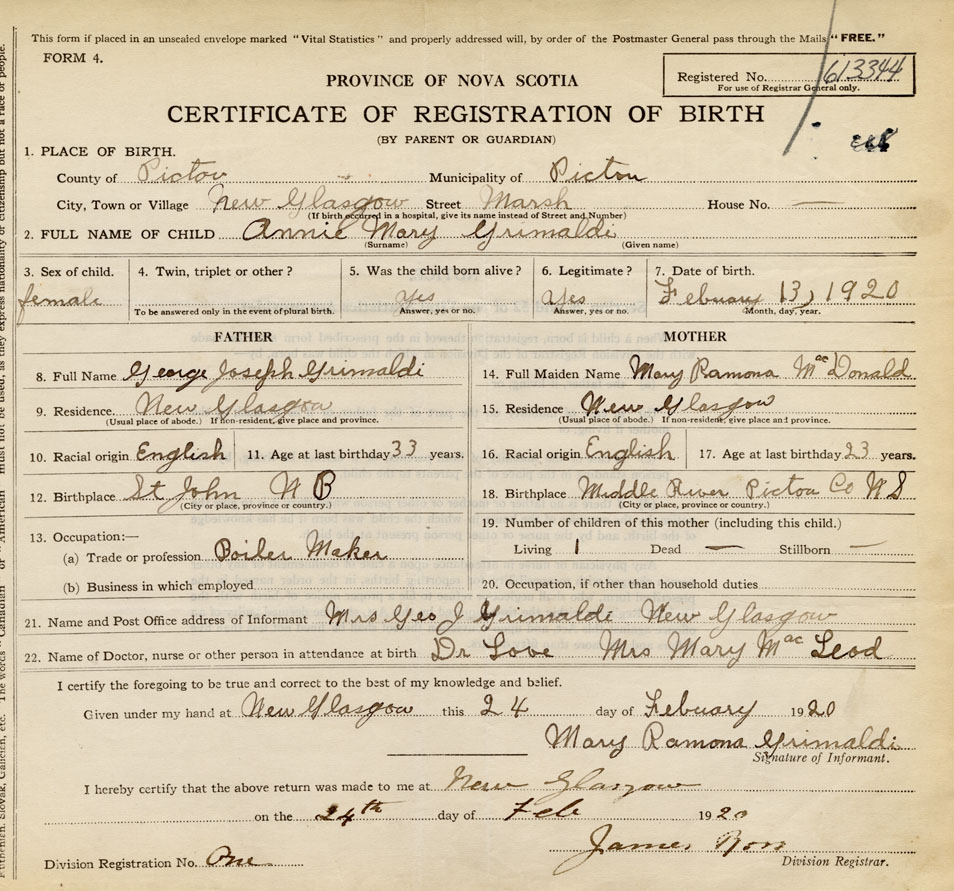 This form if placed in an unsealed envelope marked "Vital Statistics" and properly addressed will, by order of the Postmaster General pass through the Mails "FREE."
FORM 4.
Registered No. 613344
For use of Registrar General only.
PROVINCE OF NOVA SCOTIA
CERTIFICATE OF REGISTRATION OF BIRTH
(BY PARENT OR GUARDIAN)
1. PLACE OF BIRTH.
County of Pictou Municipality of Pictou
City, Town or Village New Glasgow Street Marsh House No. —
(If birth occurred in a hospital, give its name instead of Street and Number)
2. FULL NAME OF CHILD Annie Mary Grimaldi
(Surname) (Given name)
3. Sex of child. 4. Twin, triplet or other? 5. Was the child born alive? 6. Legitimate? 7. Date of birth.
female Yes Yes Febuary 13, 1920
To be answered only in the event of plural birth. Answer, yes or no. Answer, yes or no. Month, day, year.
FATHER MOTHER
8. Full Name George Joseph Grimaldi 14. Full Maiden Name Mary Ramona MacDonald
9. Residence. New Glasgow 15. Residence New Glasgow
(Usual place of abode.) If non-resident, give place and province. (Usual place of abode.) If non-resident, give place and province.
10. Racial origin English 11. Age at last birthday 33 years. 16. Racial origin English 17. Age at last birthday 23 years.
12. Birthplace St John N B 18. Birthplace Middle River Pictou Co N S
(City or place, province or country.) (City or place, province or country.)
13. Occupation:— 19. Number of children of this mother (including this child.)
(a) Trade or profession Boiler Maker Living 1 Dead — Stillborn —
(b) Business in which employed 20. Occupation, if other than household duties
21. Name and Post Office address of Informant Mrs Geo J Grimaldi New Glasgow
22. Name of Doctor, nurse or other person in attendance at birth Dr Love Mrs Mary MacLeod
I certify the foregoing to be true and correct to the best of my knowledge and belief.
Given under my hand at New Glasgow this 24 day of Febuary 1920
Mary Ramona Grimaldi
Signature of Informant.
I hereby certify that the above return was made to me at New Glasgow
on the 24th day of Feb 1920
James
Division Registration No. One Division Registrar.